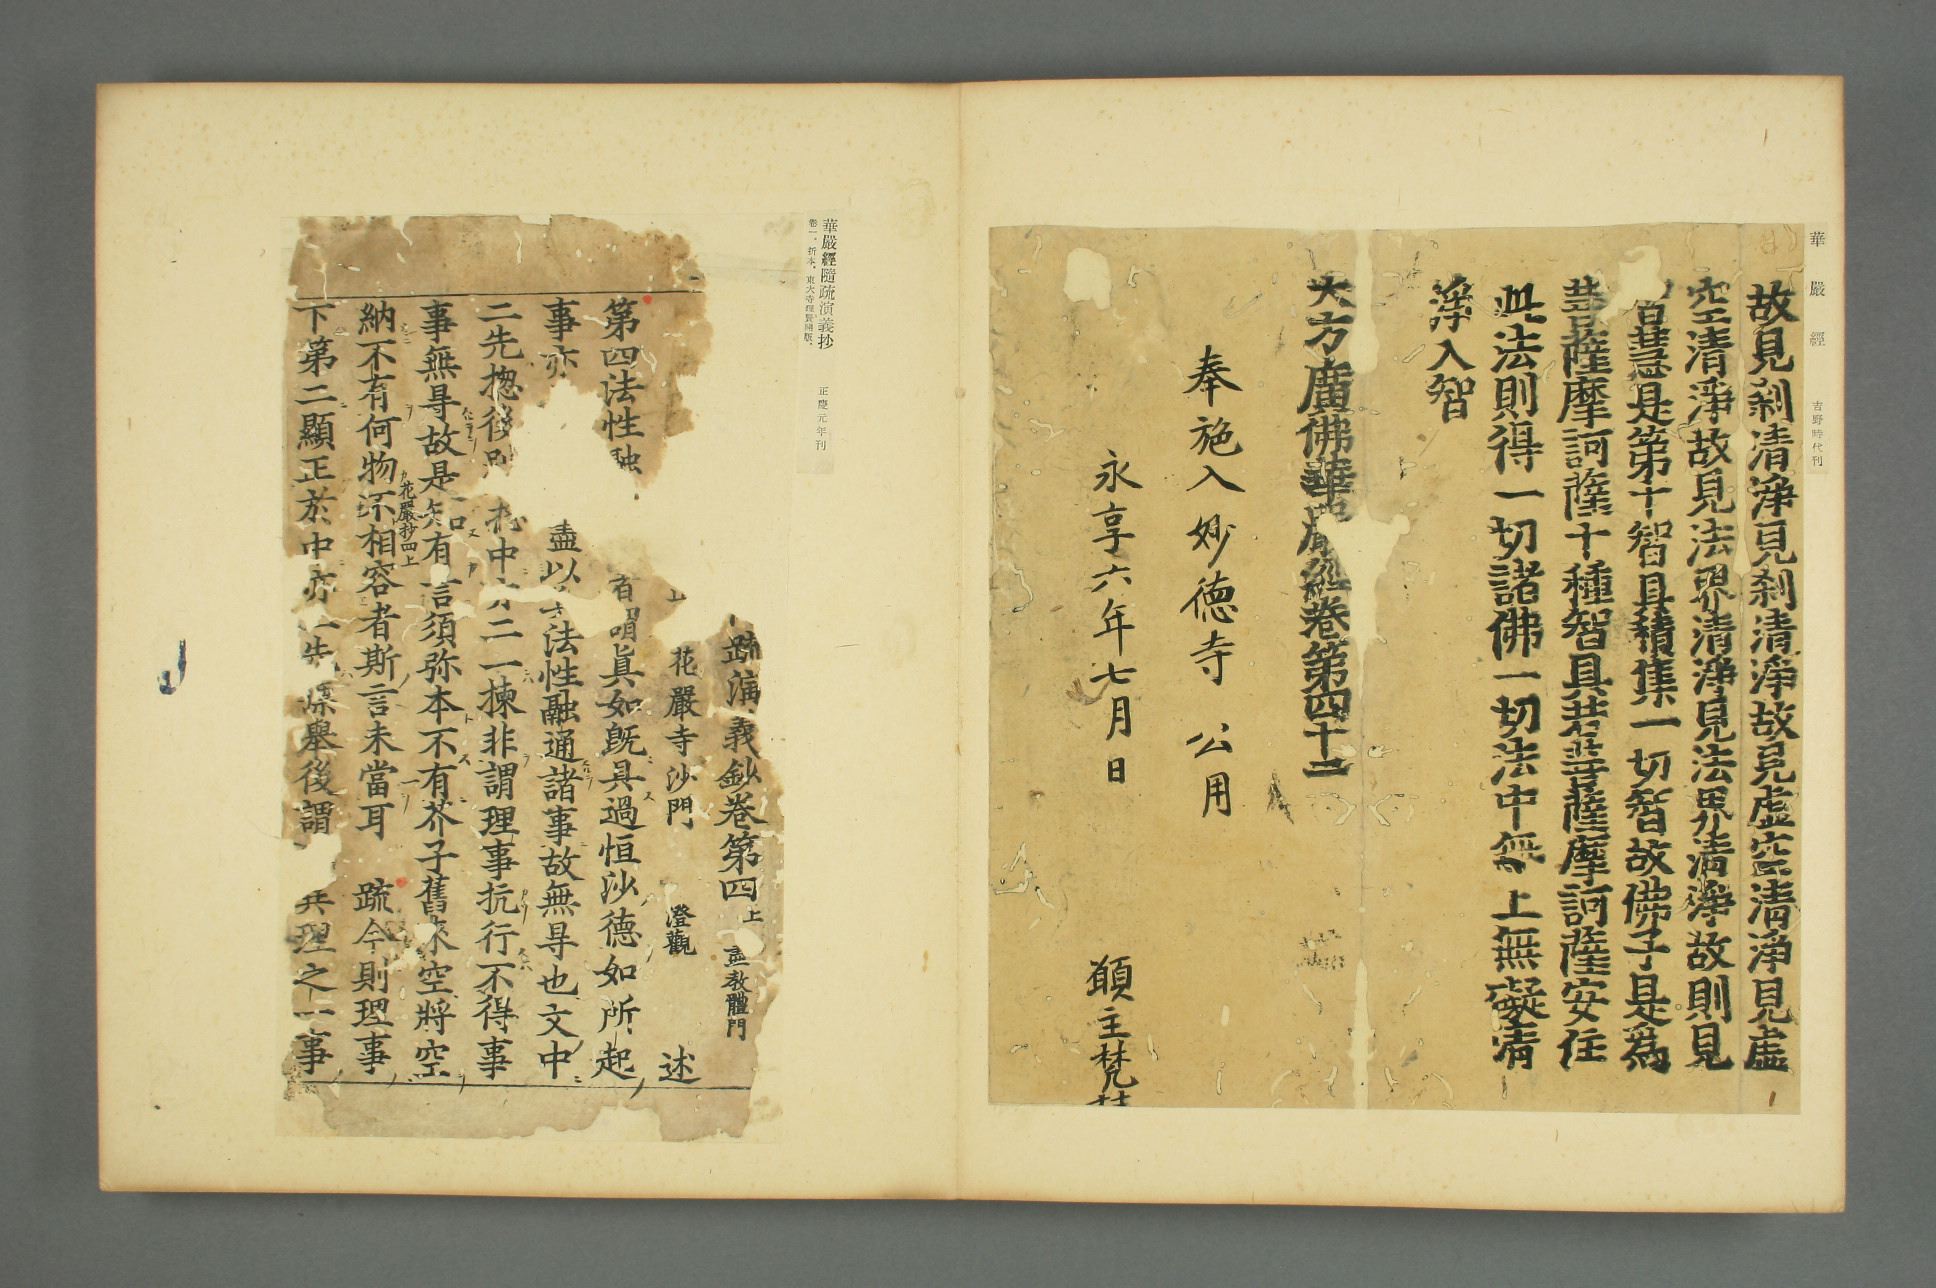 華嚴經 吉野時代刊
故見刹清淨見刹清淨故見虛空清淨見虛
空清淨故見法界清淨見法界清淨故則見
智慧是第十智具積集一切智故佛子是爲
菩薩摩訶薩十種智具若菩薩摩訶薩安住
此法則得一切諸佛一切法中無上無礙清
淨入智
大方廣佛華嚴經卷第四十二
奉施入妙德寺 公用
永享六年七月日
願主梵
華嚴經隨疏演義抄 正慶元年刊
卷一、折本、東大寺 開版、
疏演義鈔卷第四上 教體門
花嚴寺沙門 澄觀 述
第四法性融 者謂眞如旣具過恒沙德如所起
事亦 盡以 法性融通諸事故無㝵也文中
二先揔後別 中 二一揀非謂理事抗行不得事
事無㝵故是知有言須弥本不有芥子舊來空將空
納不有何物不相容者斯言未當耳 疏今則理事
花嚴抄四上
下第二顯正於中亦 先 標舉後謂 理之一事